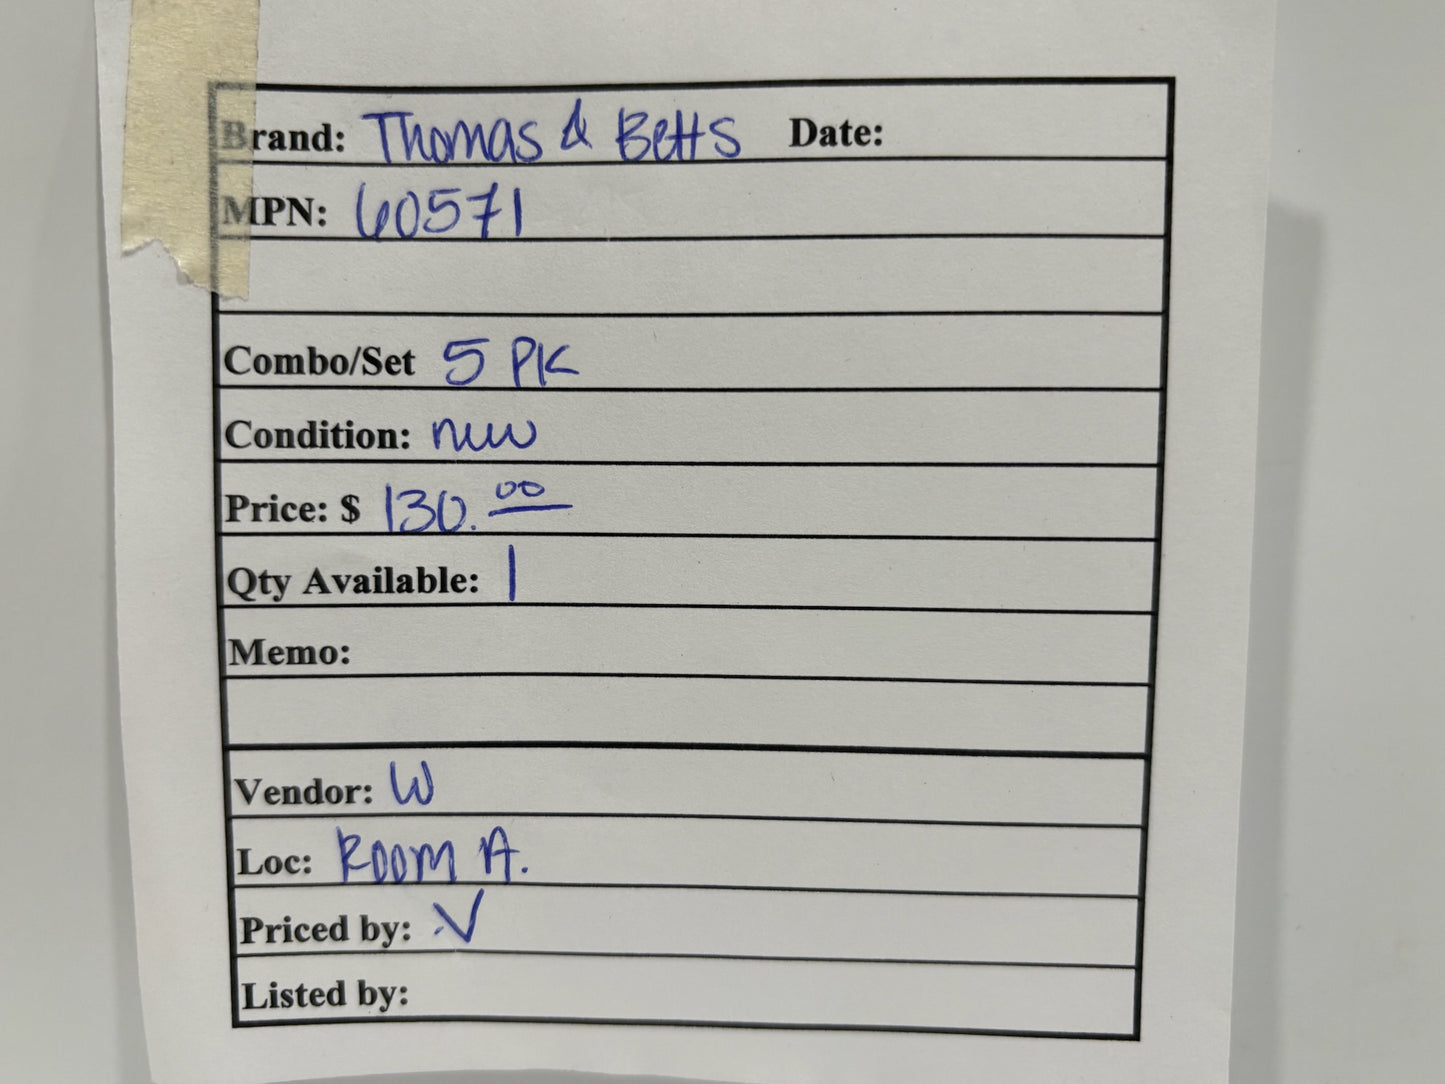 Brand: Thomas & Betts Date:
MPN: 60571
Combo/Set 5 PK
Condition: new
Price: $ 130.00
Qty Available: 1
Memo:
Vendor: W
Loc: Room A.
Priced by: V
Listed by: